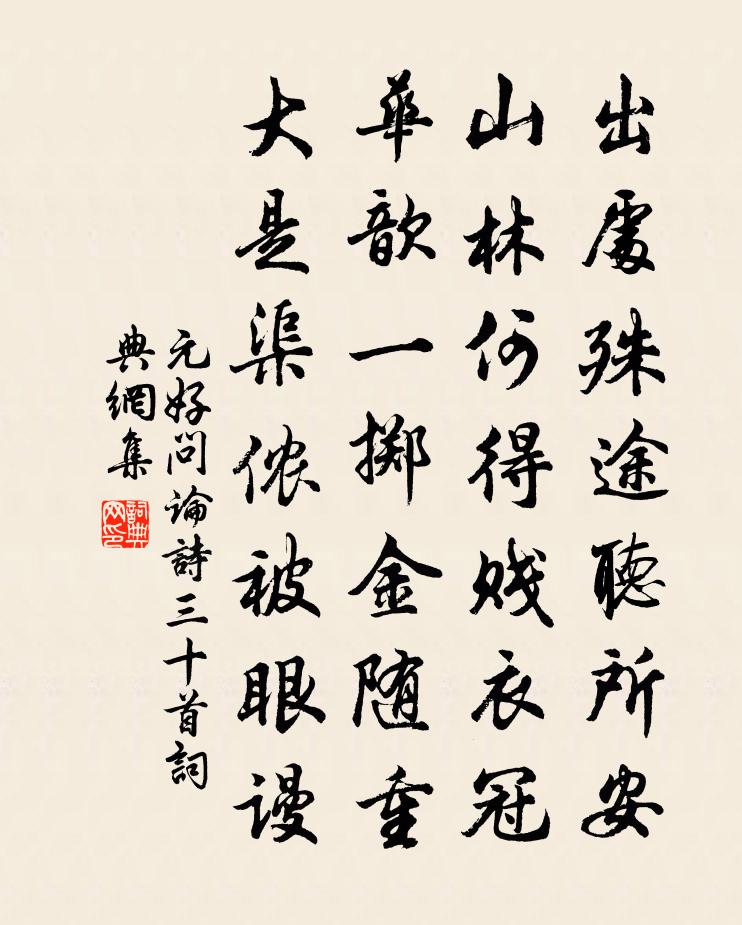 出處殊途聽所安
山林何得贱衣冠
華歆一擲金随重
大是渠侬被眼谩
元好问論詩三十首詞
典網集
詞典網印